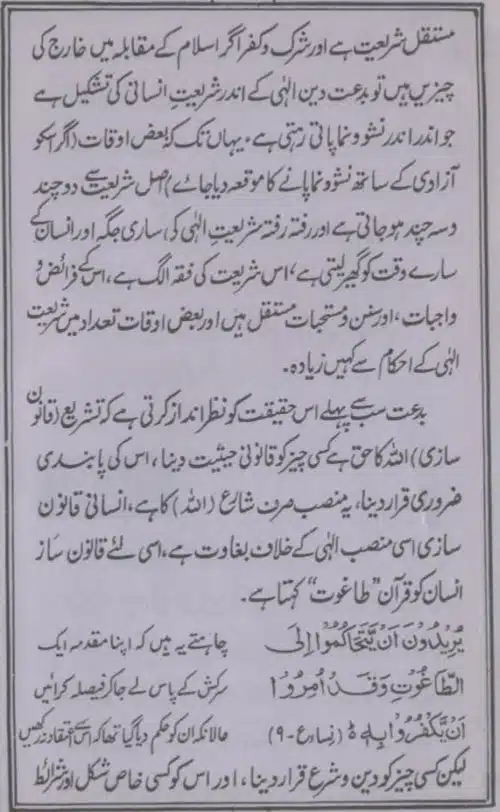 مستقل شریعت ہے اور شرک و کفر اگر اسلام کے مقابلہ میں خارج کی
چیزیں ہیں تو بدعت دین الٰہی کے اندر شریعتِ انسانی کی تشکیل ہے
جو اندر اندر نشو و نما پاتی رہتی ہے، یہاں تک کہ بعض اوقات (اگر اسکو
آزادی کے ساتھ نشو و نما پانے کا موقعہ دیا جائے) اصل شریعت سے دو چند
و سہ چند ہو جاتی ہے اور رفتہ رفتہ شریعتِ الٰہی کی ساری جگہ اور انسان کے
سارے وقت کو گھیر لیتی ہے، اس شریعت کی فقہ الگ ہے، اس کے فرائض و
واجبات، اور سنن و مستحبات مستقل ہیں اور بعض اوقات تعداد میں شریعت
الٰہی کے احکام سے کہیں زیادہ۔
بدعت سب سے پہلے اس حقیقت کو نظر انداز کرتی ہے کہ تشریع (قانون
سازی) اللہ کا حق ہے کسی چیز کو قانونی حیثیت دینا، اس کی پابندی
ضروری قرار دینا، یہ منصب صرف شارع (اللہ) کا ہے، انسانی قانون
سازی اسی منصب الٰہی کے خلاف بغاوت ہے، اسی لئے قانون ساز
انسان کو قرآن "طاغوت" کہتا ہے۔
يُرِيدُونَ اَنْ يَّتَحَاكَمُوْا اِلَى چاہتے یہ ہیں کہ اپنا مقدمہ ایک
الطَّاغُوْتِ وَقَدْ اُمِرُوْا سرکش کے پاس لے جا کر فیصلہ کرائیں
اَنْ يَّكْفُرُوْا بِهٖ ہ (نساء ع-۹) حالانکہ ان کو حکم دیا گیا تھا کہ اس سے اعتقاد نہ رکھیں
لیکن کسی چیز کو دین و شرع قرار دینا، اور اس کو کسی خاص شکل اور شرائط